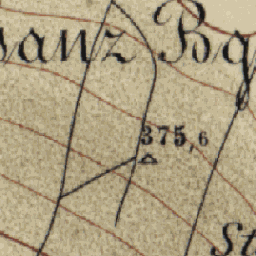 anz Bg
375,6
St